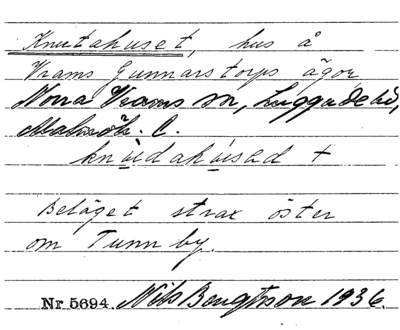 Knutahuset, hus å
Vrams Gunnarstorps ägor
Norra Vrams sn, Luggude hd,
Malmöh. l.
knùdahúsəd +
Beläget strax öster
om Tunnby.
Nr 5694. Nils Bengtsson 1936.